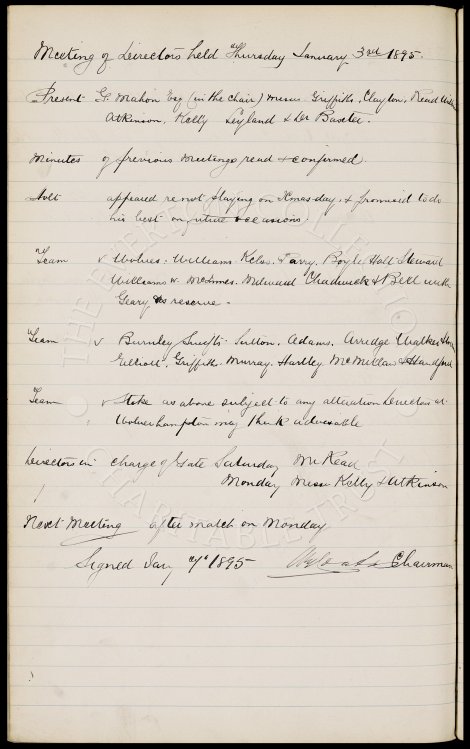 Meeting of Directors held Thursday January 3rd 1895.
Present G. Mahon Esq (in the chair) Messrs Griffiths, Clayton, Read
Atkinson, Kelly Leyland & Dr Baxter.
Minutes of previous meetings read & confirmed.
Holt appeared re not playing on Xmas day, & promised to do
his best on future occasions.
Team v Wolves. Williams Kelso, Parry, Boyle Holt Stewart
Williams W. McInnes. Milward Chadwick & Bell with
Geary as reserve.
Team v Burnley Swifts. Sutton, Adams, Arridge Walker
Elliott, Griffith. Murray, Hartley, McMillan & Handford
Team v Stoke as above subject to any alteration Directors at
Wolverhampton may think advisable
Directors in charge of Gate Saturday Mr Read
Monday Messrs Kelly & Atkinson
Next Meeting after match on Monday
Signed Jany 7th 1895 Chairman
THE EVERTON COLLECTION
CHARITABLE TRUST